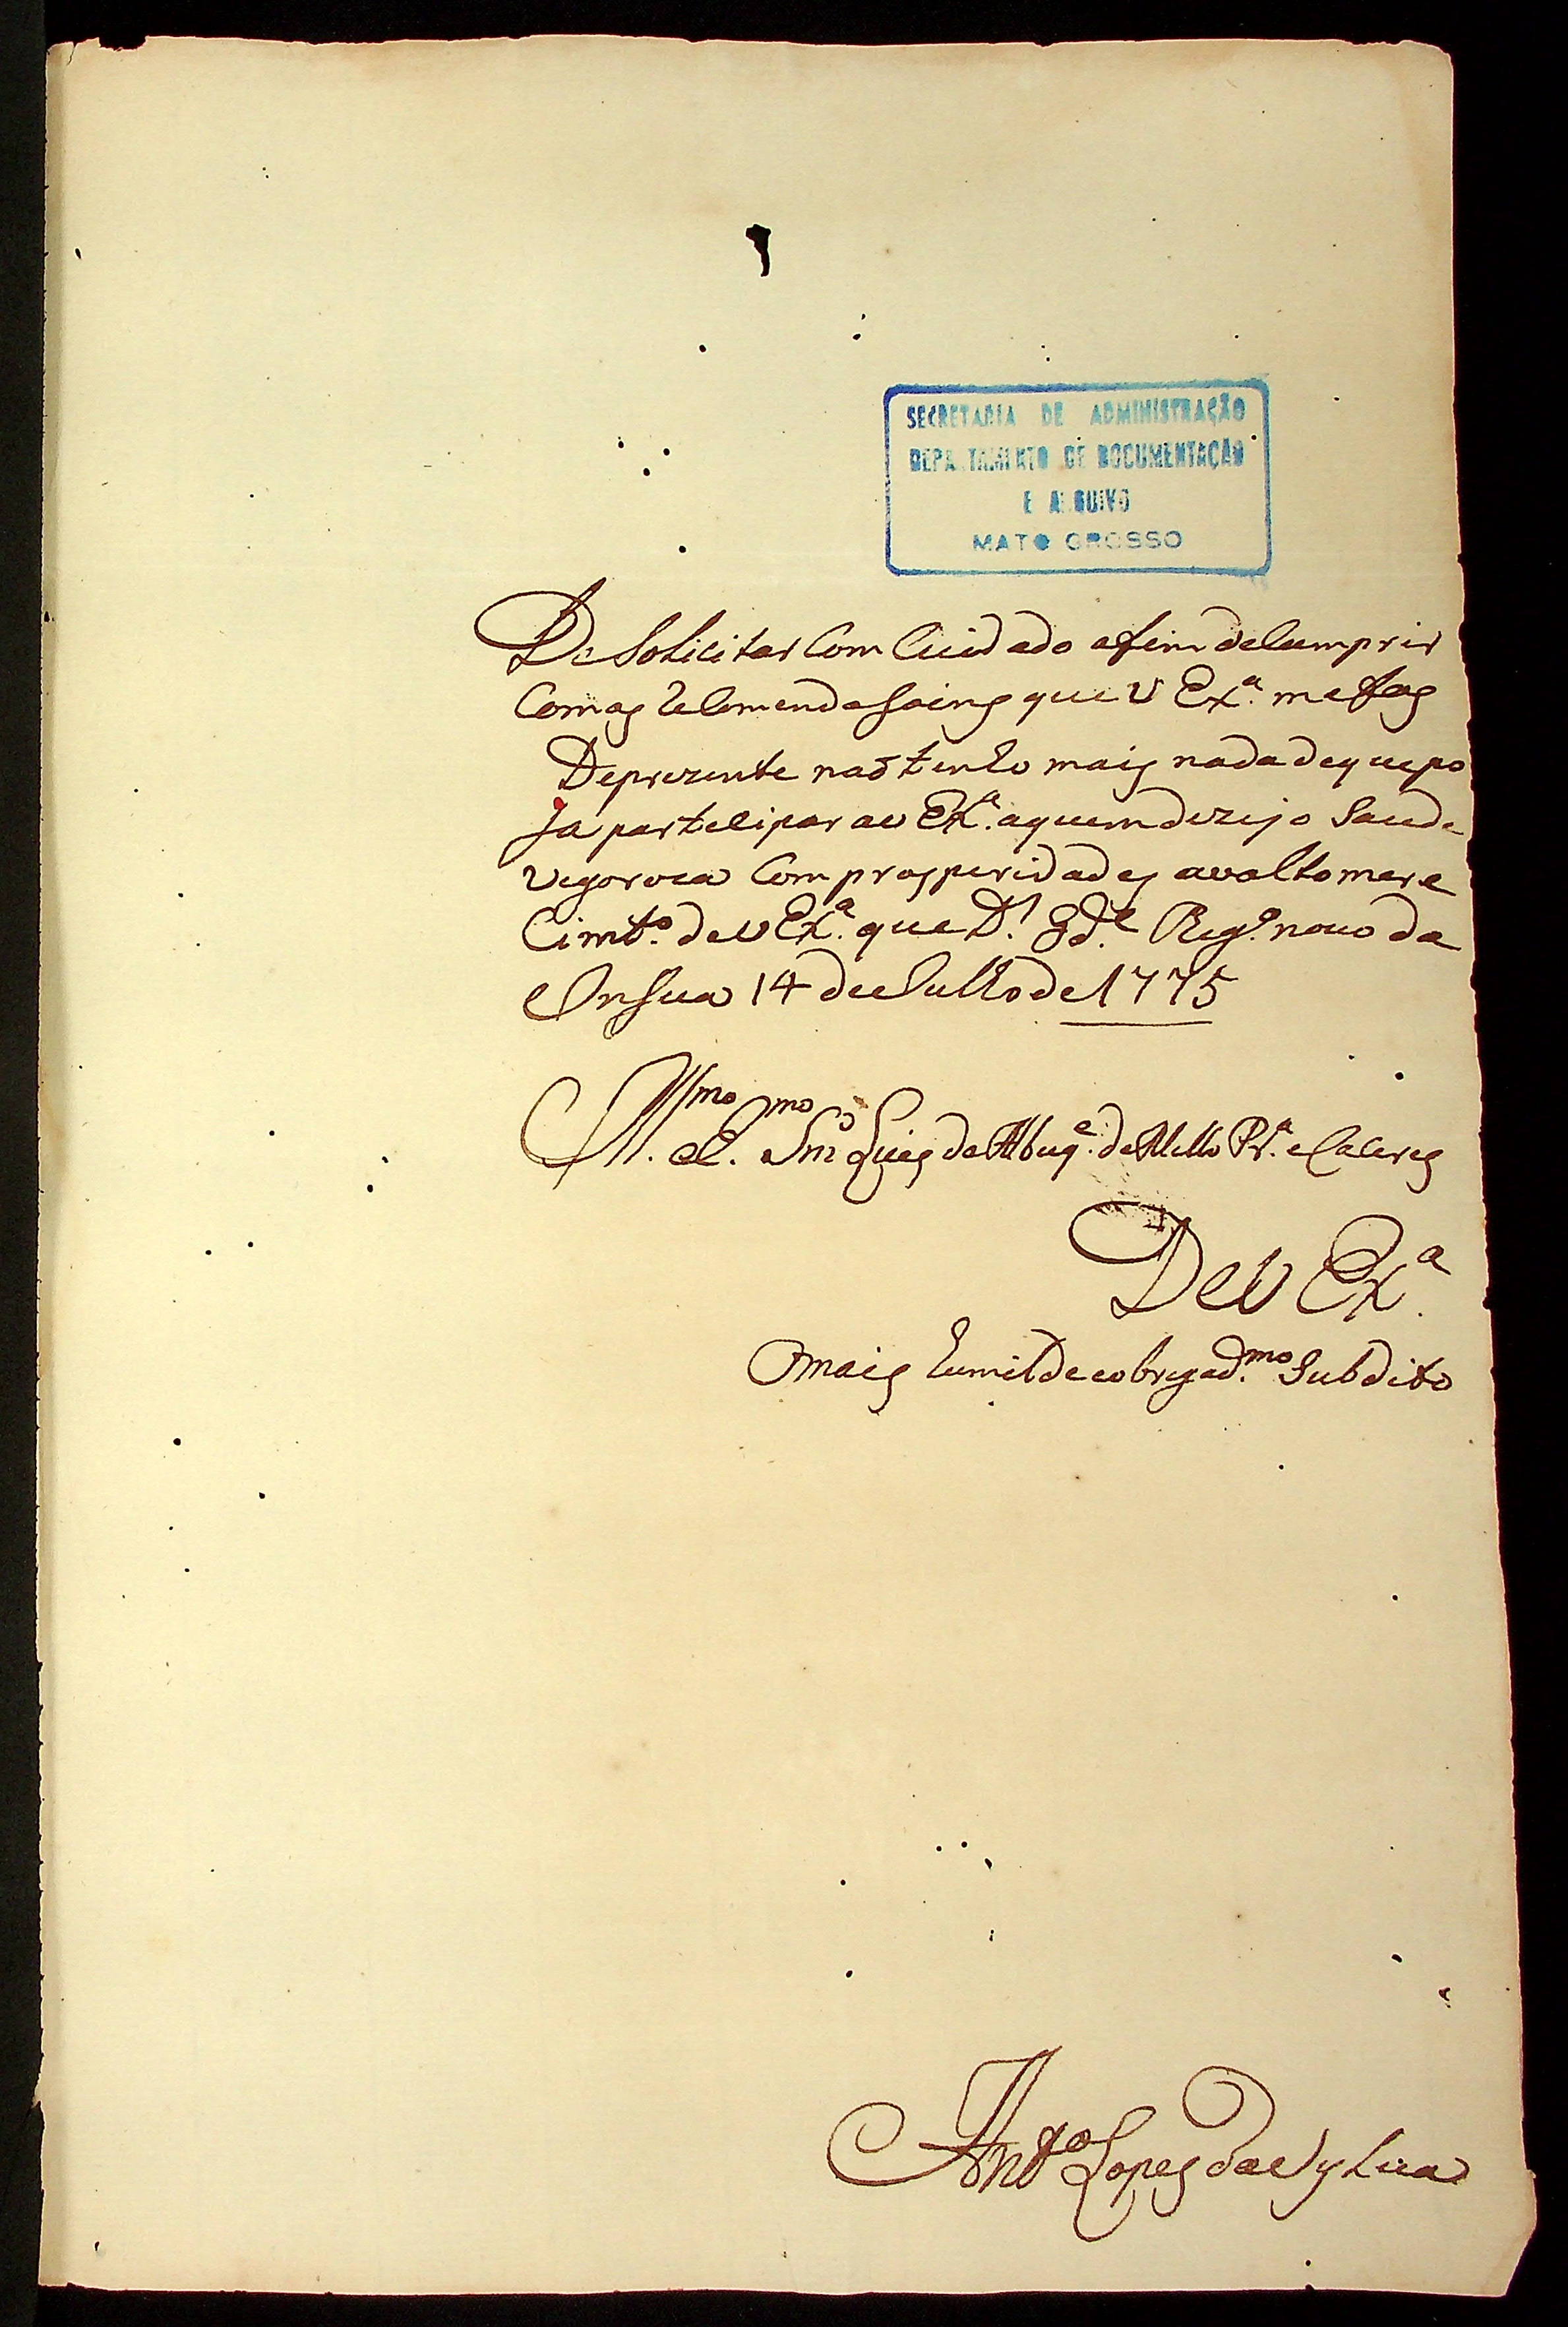 SECRETARIA DE ADMINISTRAÇÃO
DEPARTAMENTO DE DOCUMENTAÇÃO
E ARQUIVO
MATO GROSSO
De Solicitar Com Cuidado afim deCumprir
Comas Recomendasoins que V Exª. me fas
Deprezente naõ tenho mais nada dequepo
sa partecipar aV Exª. aquem dezejo Saude
vigoroza Com prosperidades avoltomere
Cimtº. deV Exª. que Dˢ. Gdᵉ. Regº. novo da
Insua 14 de Julho de 1775
Illᵐᵒ. e Exᵐᵒ. Snʳ Luis de Albuqᵉ. de Mello Prª. e Caceres
DeV Exª.
O mais humilde e obrigadᵐᵒ. Subdito
Antº Lopes da Sylva